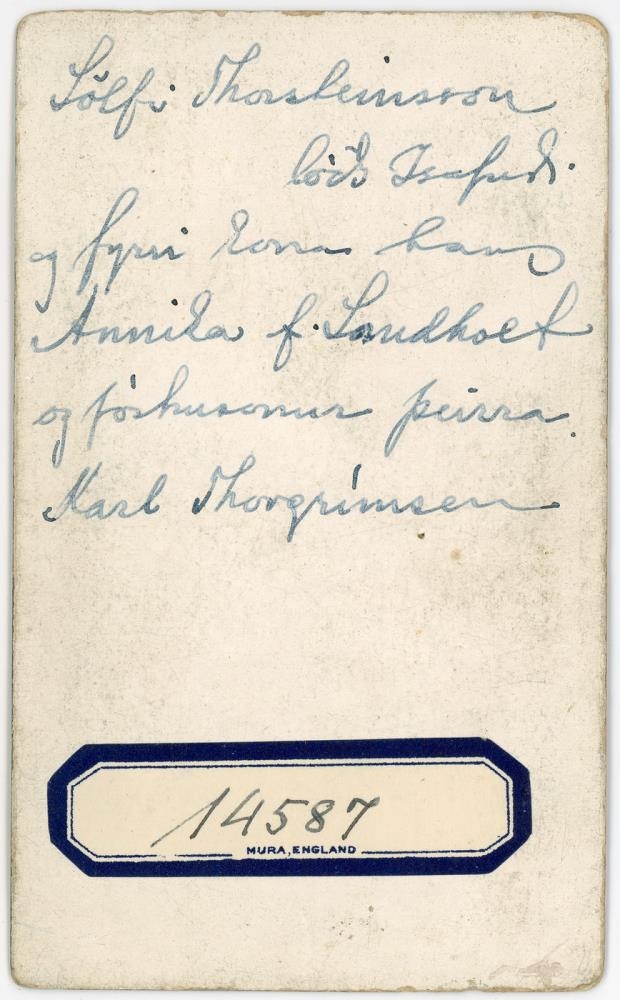 Sölfi Thorsteinsson
lóðs Isafirði.
og fyrri kona hans
Annika f. Sandholt
og fóstursonur þeirra.
Karl Thorgrímsen
14587
MURA, ENGLAND